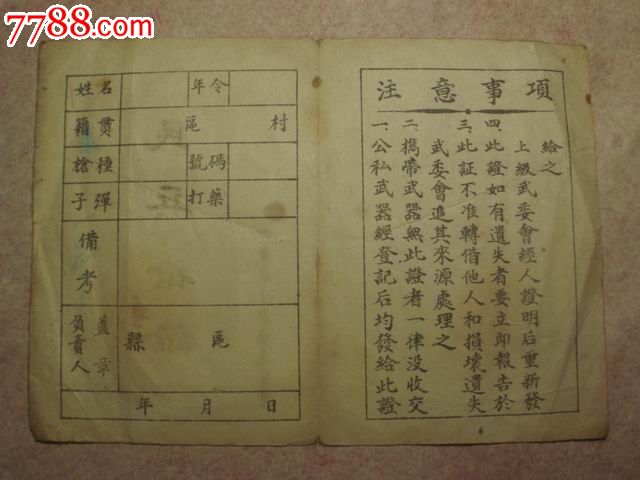 7788.com
姓名 年令
籍贯 區 村
槍種 號碼
子彈 打藥
備考
負責人 蓋章 縣 區
年 月 日
注意事項
一、公私武器經登記后均發給此證
二、携帶武器無此證者一律没收交
武委會追其來源處理之
三、此証不准轉借他人和損壞遺失
四、此證如有遺失者要立即報告於
上級武委會經人證明后重新發
給之
7788.com